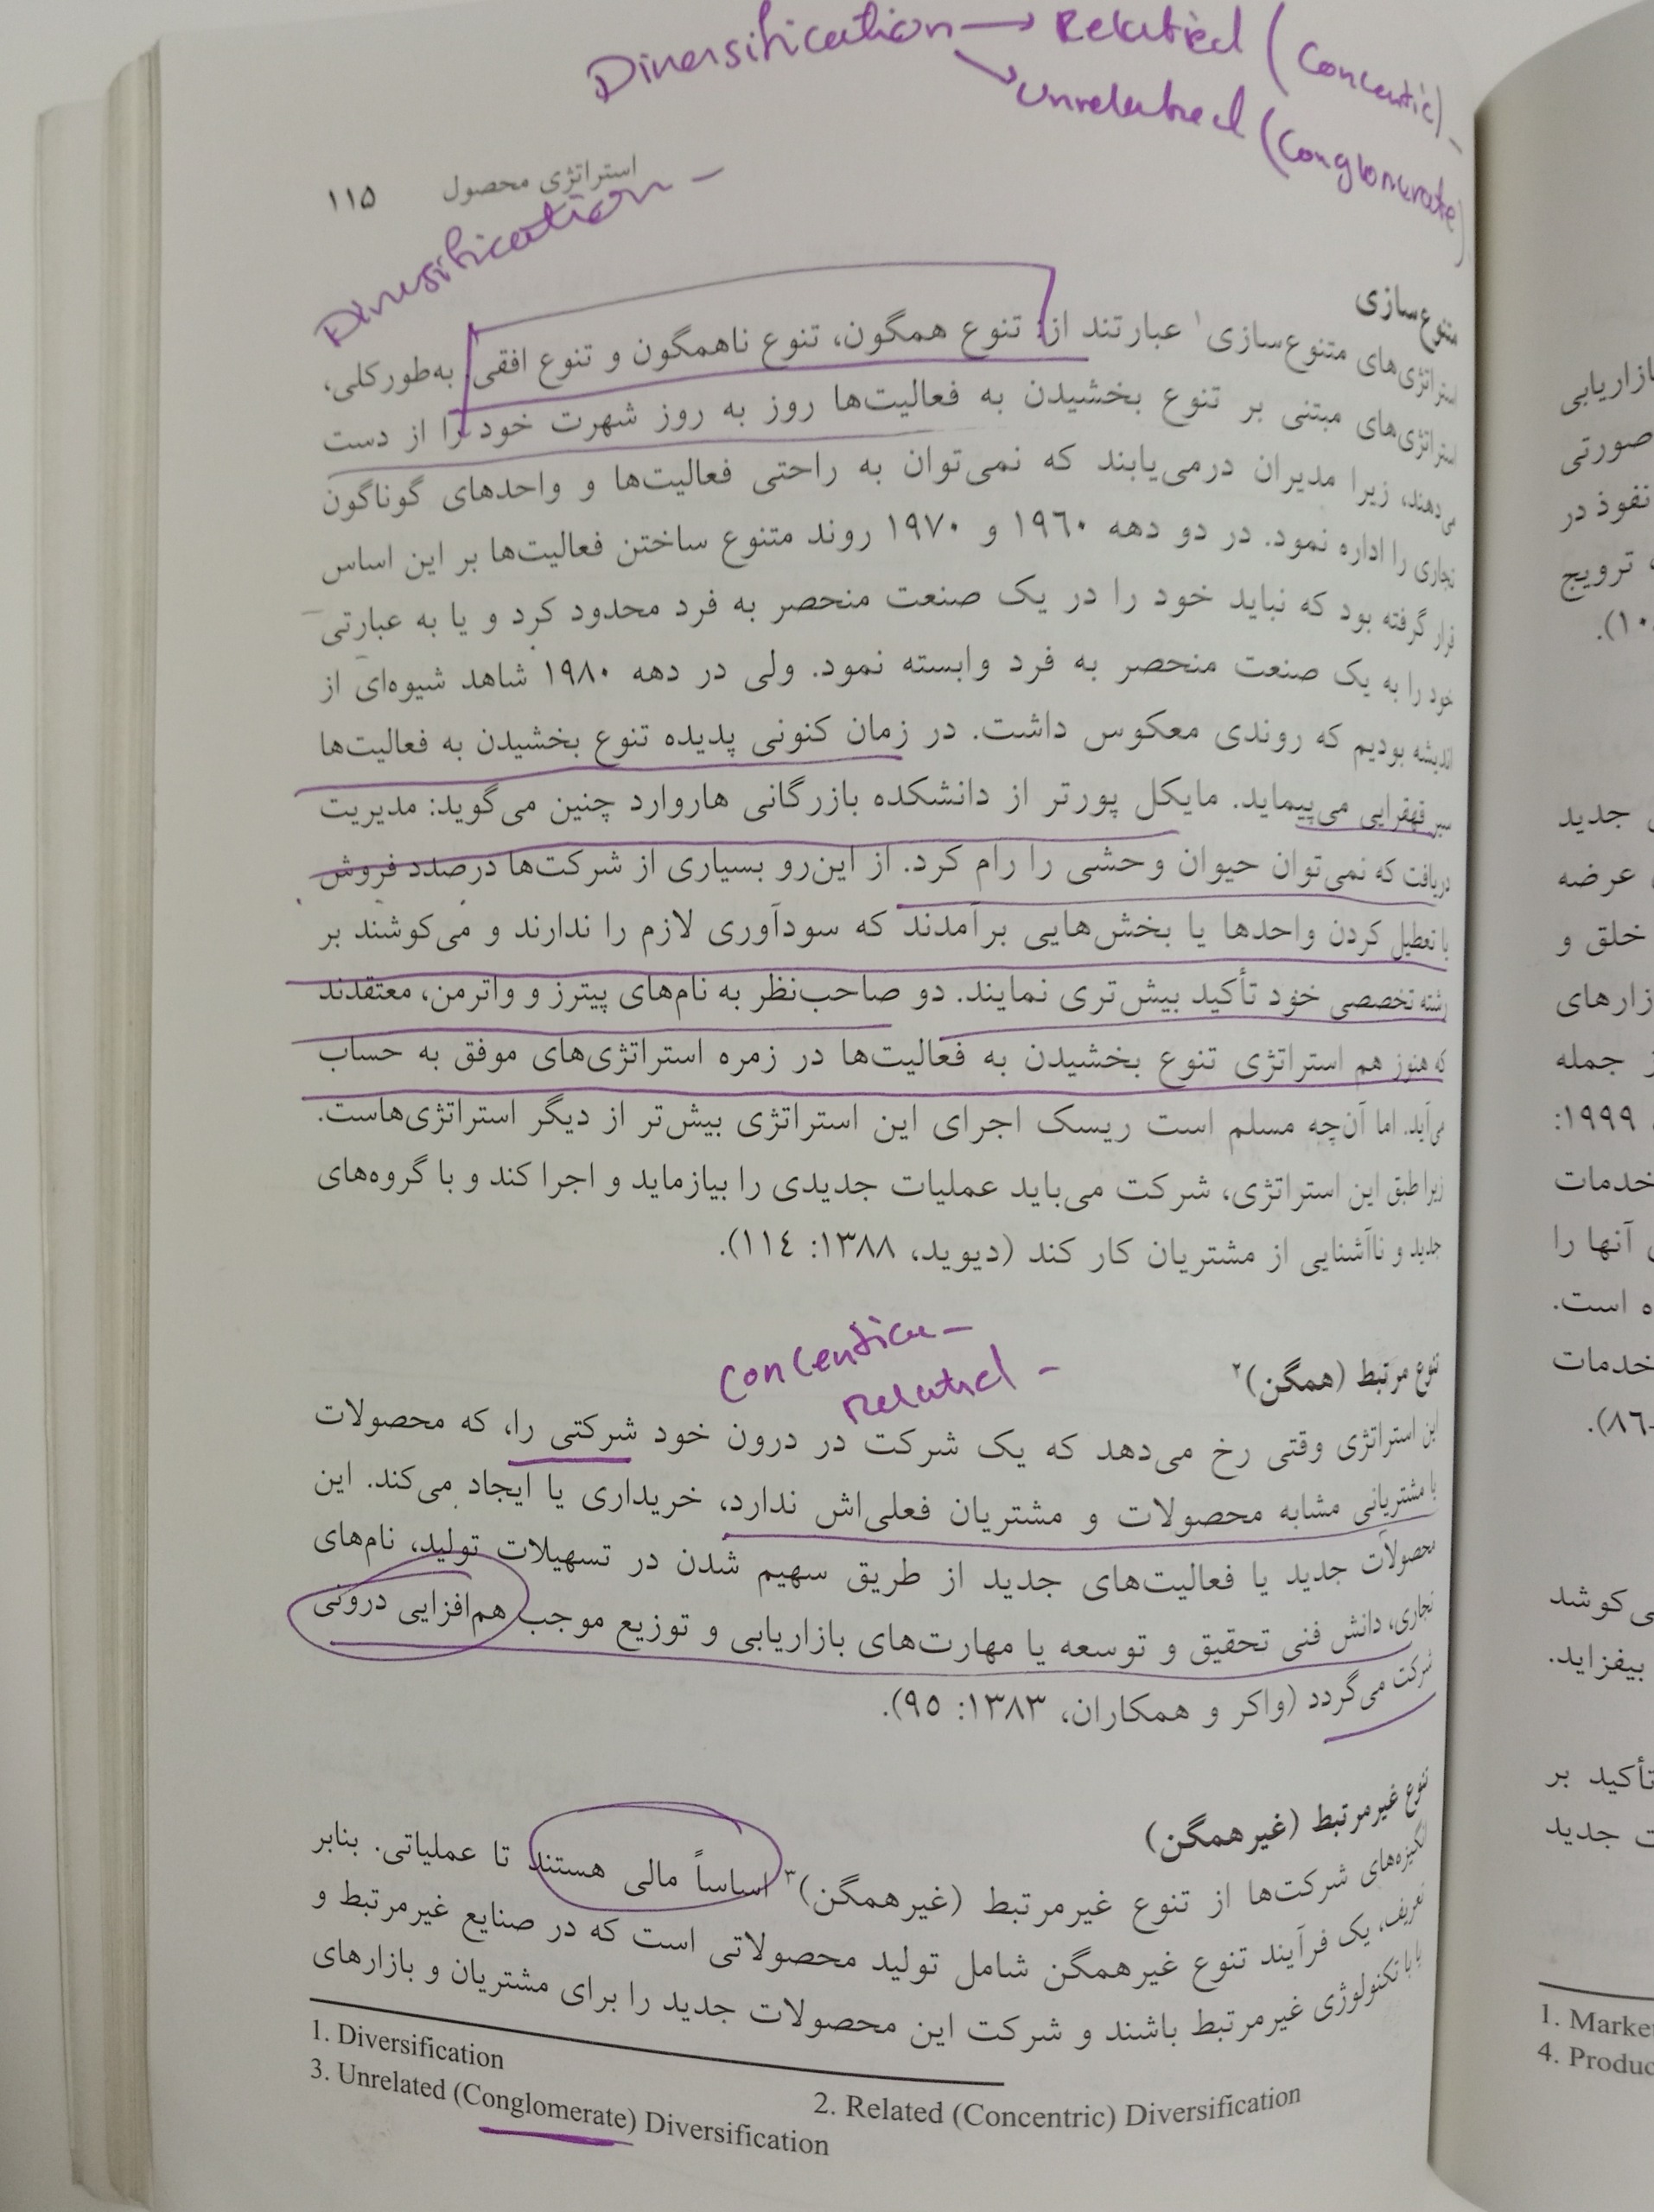 Diversification → Related (Concentic) -
Unrelated (Conglomerate)
استراتژی محصول ۱۱۵
Diversification -
متنوع‌سازی
استراتژی‌های متنوع‌سازی۱ عبارتند از: تنوع همگون، تنوع ناهمگون و تنوع افقی. به‌طورکلی،
استراتژی‌های مبتنی بر تنوع بخشیدن به فعالیت‌ها روز به روز شهرت خود را از دست
می‌دهند، زیرا مدیران درمی‌یابند که نمی‌توان به راحتی فعالیت‌ها و واحدهای گوناگون
تجاری را اداره نمود. در دو دهه ۱۹۶۰ و ۱۹۷۰ روند متنوع ساختن فعالیت‌ها بر این اساس
قرار گرفته بود که نباید خود را در یک صنعت منحصر به فرد محدود کرد و یا به عبارتی
خود را به یک صنعت منحصر به فرد وابسته نمود. ولی در دهه ۱۹۸۰ شاهد شیوه‌ای از
اندیشه بودیم که روندی معکوس داشت. در زمان کنونی پدیده تنوع بخشیدن به فعالیت‌ها
سیر قهقرایی می‌پیماید. مایکل پورتر از دانشکده بازرگانی هاروارد چنین می‌گوید: مدیریت
دریافت که نمی‌توان حیوان وحشی را رام کرد. از این‌رو بسیاری از شرکت‌ها درصدد فروش
یا تعطیل کردن واحدها یا بخش‌هایی برآمدند که سودآوری لازم را ندارند و می‌کوشند بر
رشته تخصصی خود تأکید بیش‌تری نمایند. دو صاحب‌نظر به نام‌های پیترز و واترمن، معتقدند
که هنوز هم استراتژی تنوع بخشیدن به فعالیت‌ها در زمره استراتژی‌های موفق به حساب
می‌آید. اما آن‌چه مسلم است ریسک اجرای این استراتژی بیش‌تر از دیگر استراتژی‌هاست.
زیرا طبق این استراتژی، شرکت می‌باید عملیات جدیدی را بیازماید و اجرا کند و با گروه‌های
جدید و ناآشنایی از مشتریان کار کند (دیوید، ۱۳۸۸: ۱۱٤).
Related -
تنوع مرتبط (همگن)۲
این استراتژی وقتی رخ می‌دهد که یک شرکت در درون خود شرکتی را، که محصولات
یا مشتریانی مشابه محصولات و مشتریان فعلی‌اش ندارد، خریداری یا ایجاد می‌کند. این
محصولات جدید یا فعالیت‌های جدید از طریق سهیم شدن در تسهیلات تولید، نام‌های
تجاری، دانش فنی تحقیق و توسعه یا مهارت‌های بازاریابی و توزیع موجب هم‌افزایی درونی
شرکت می‌گردد (واکر و همکاران، ۱۳۸۳: ۹۵).
تنوع غیرمرتبط (غیرهمگن)
انگیزه‌های شرکت‌ها از تنوع غیرمرتبط (غیرهمگن)۳ اساساً مالی هستند تا عملیاتی. بنابر
تعریف، یک فرآیند تنوع غیرهمگن شامل تولید محصولاتی است که در صنایع غیرمرتبط و
یا با تکنولوژی غیرمرتبط باشند و شرکت این محصولات جدید را برای مشتریان و بازارهای
1. Diversification
2. Related (Concentric) Diversification
3. Unrelated (Conglomerate) Diversification
بازاریابی
صورتی
نفوذ در
ترویج
جدید
عرضه
خلق و
جمله
۱۹۹۹:
خدمات
آنها را
ه است.
خدمات
بیفزاید.
تأکید بر
ت جدید
1. Marke
4. Produc